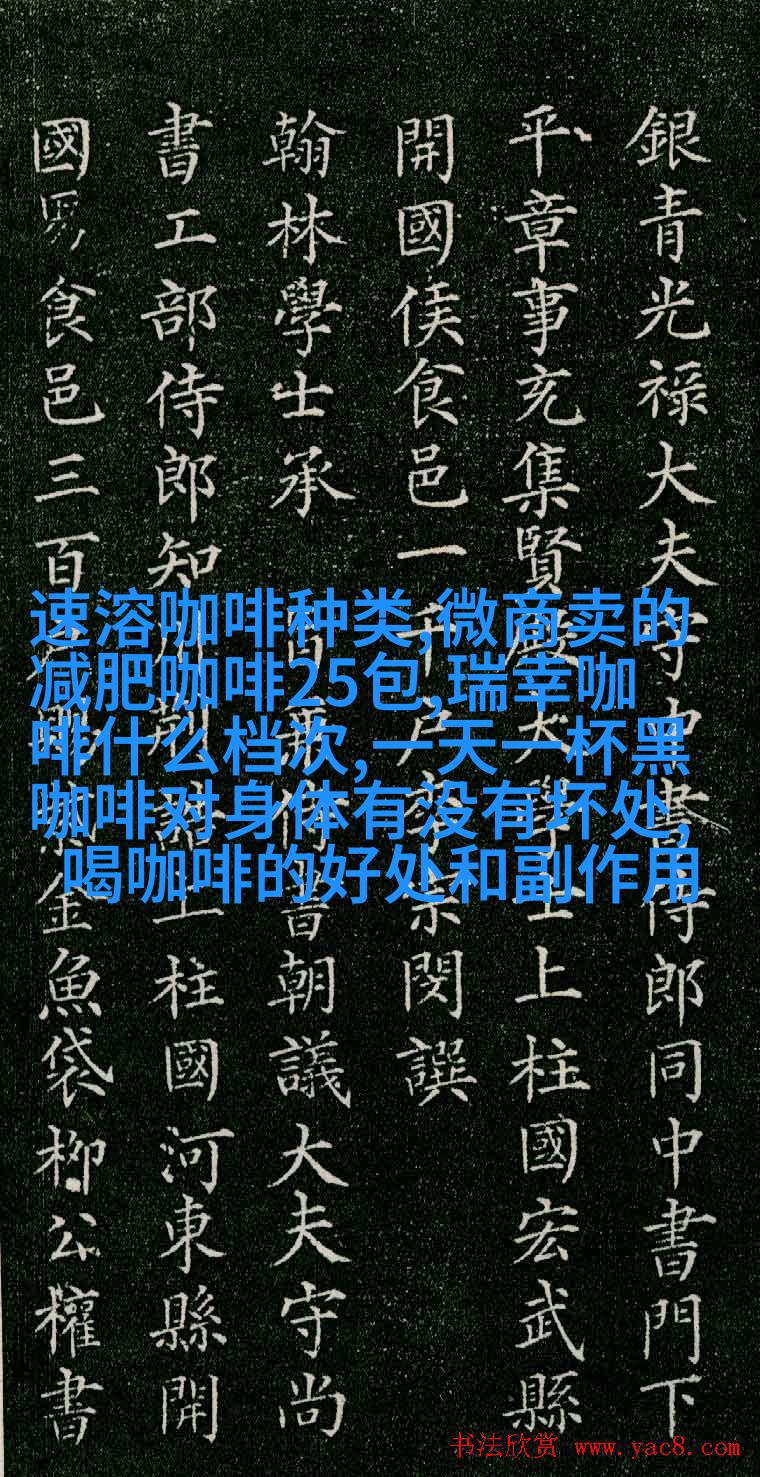 銀青光祿大夫守中書侍郎同中書門下
平章事充集賢殿大學士上柱國宏武縣
開國侯食邑一千戶李宗閔譔
翰林學士承旨兼侍書朝議大夫守尚
書工部侍郎知制誥上柱國河東縣開
國男食邑三百金魚袋柳公權書
速溶咖啡种类,微商卖的
减肥咖啡25包,瑞幸咖
啡什么档次,一天一杯黑
咖啡对身体有没有坏处,
喝咖啡的好处和副作用
书法欣赏 www.yac8.com